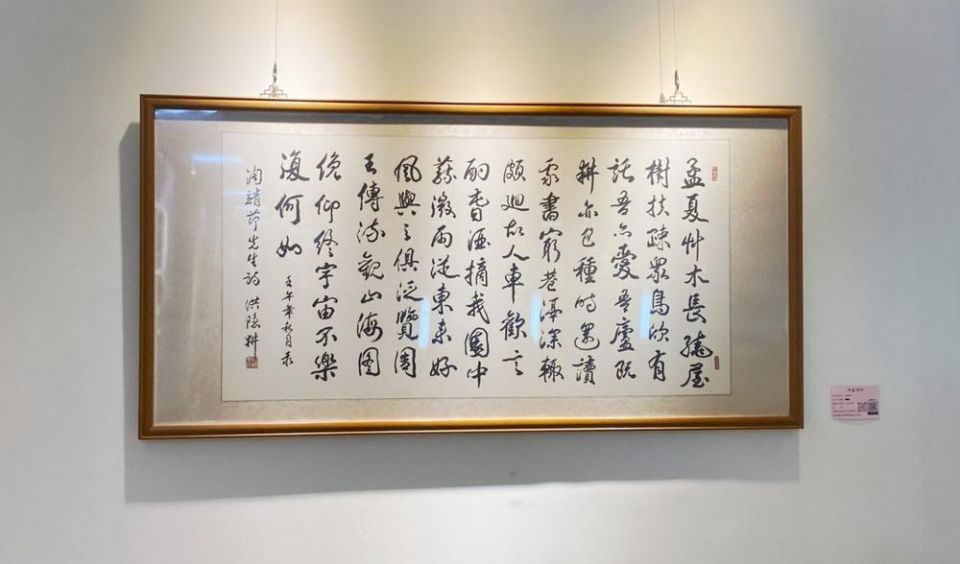 孟夏艸木長繞屋
樹扶疎眾鳥欣有
託吾亦愛吾廬既
耕亦已種時還讀
我書窮巷深轍
頗迴故人車歡言
酌春酒摘我園中
蔬微雨從東來好
風與之俱泛覽周
王傳流觀山海图
俛仰終宇宙不樂
復何如
壬午年秋月录
陶靖節先生詩 洪